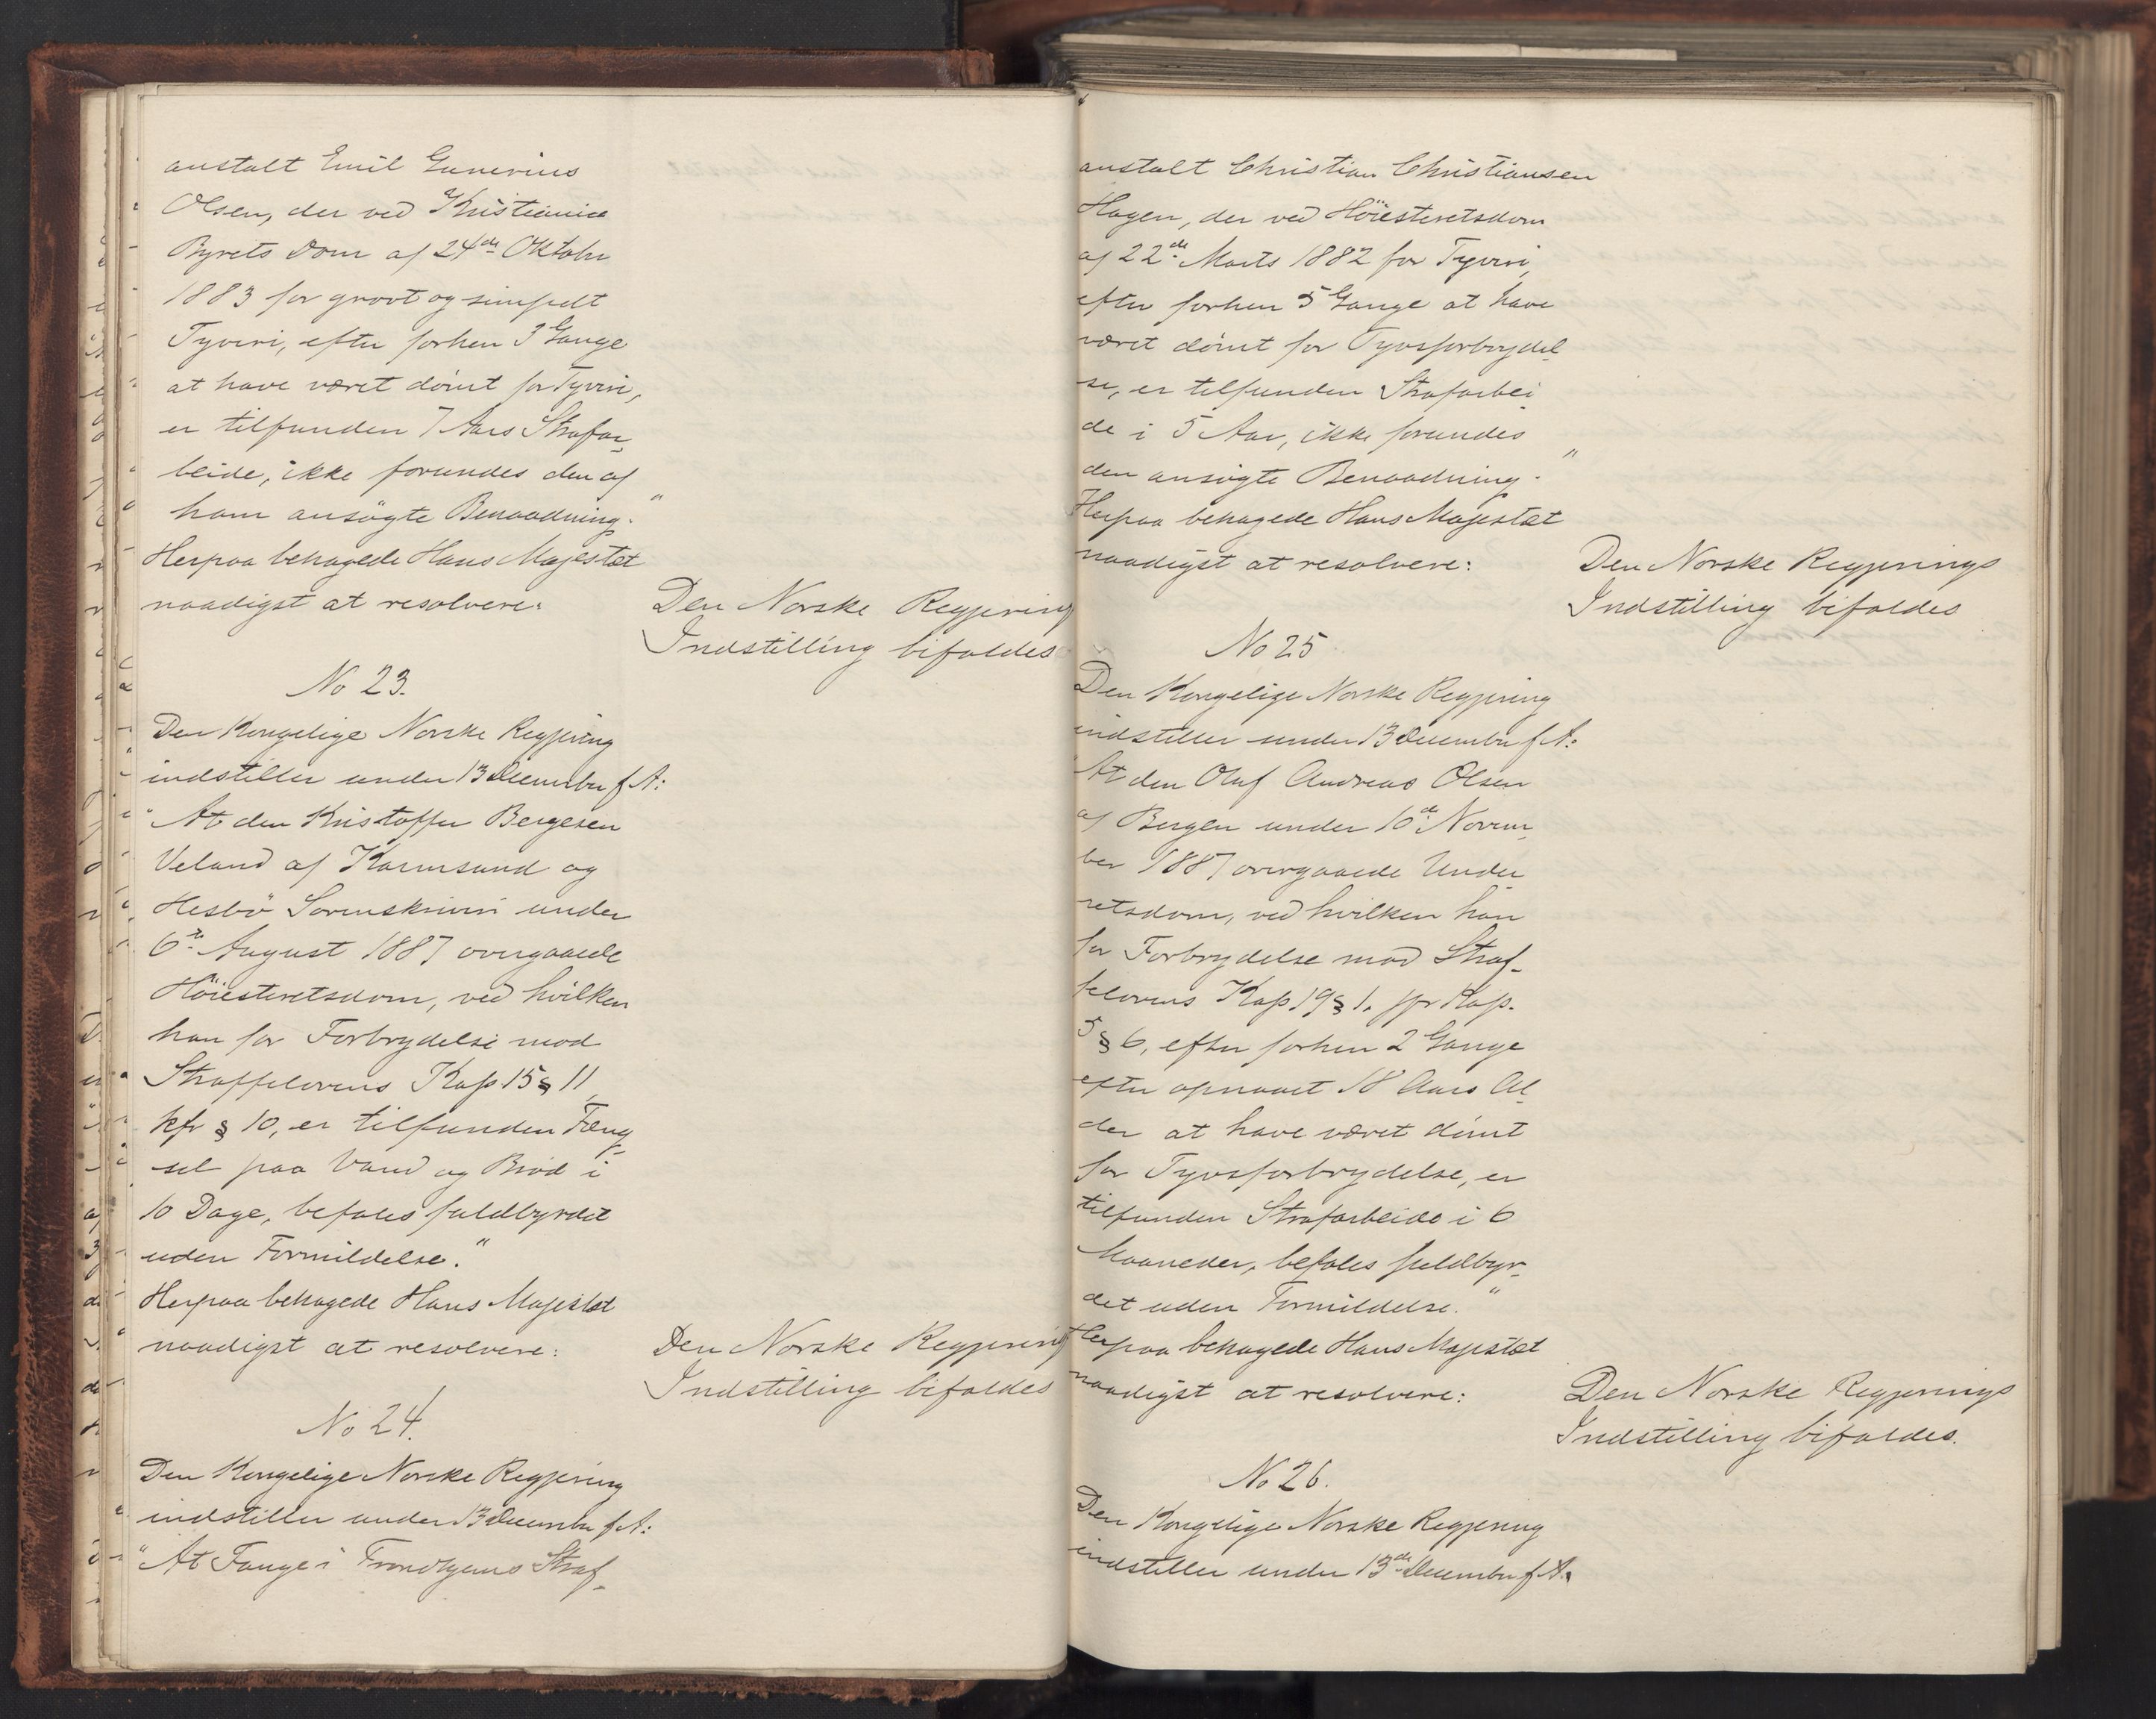 anstalt Emil Gunerius
Olsen, der ved Kristiania
Byrets Dom af 24de Oktober
1883 for grovt og simpelt
Tyveri, efter forhen 3 Gange
at have været dömt for Tyveri,
er tilfunden 7 Aars Strafar-
beide, ikke forundes den af
ham ansögte Benaadning."
Herpaa behagede Hans Majestæt
naadigst at resolvere:
Den Norske Regjerings
Indstilling bifaldes
No 23.
Den Kongelige Norske Regjering
indstiller under 13 December f A:
"At den Kristoffer Bergesen
Veland af Karmsund og
Hesbö Sorenskriveri under
6te August 1887 overgaaede
Höiesteretsdom, ved hvilken
han for Forbrydelse mod
Straffelovens Kap 15 § 11,
kfr § 10, er tilfunden Fæng-
sel paa Vand og Bröd i
10 Dage, befales fuldbyrdet
uden Formildelse."
Herpaa behagede Hans Majestæt
naadigst at resolvere:
Den Norske Regjering
Indstilling bifaldes
No 24.
Den Kongelige Norske Regjering
indstiller under 13 December f A:
"At Fange i Trondhjems Straf-
anstalt Christian Christiansen
Hagen, der ved Höiesteretsdom
af 22de Marts 1882 for Tyveri,
efter forhen 5 Gange at have
været dömt for Tyvsforbrydel-
se, er tilfunden Strafarbei-
de i 5 Aar, ikke forundes
den ansögte Benaadning."
Herpaa behagede Hans Majestæt
naadigst at resolvere:
Den Norske Regjerings
Indstilling bifaldes
No 25
Den Kongelige Norske Regjering
indstiller under 13 December f A:
"At den Oluf Andreas Olsen
af Bergen under 10de Novem-
ber 1887 overgaaede Under-
retsdom, ved hvilken han
for Forbrydelse mod Straf-
felovens Kap 19 § 1. jfr Kap.
5 § 6, efter forhen 2 Gange
efter opnaaet 18 Aars Al-
der at have været dömt
for Tyvsforbrydelse, er
tilfunden Strafarbeide i 6
Maaneder, befales fuldbyr-
det uden Formildelse."
Herpaa behagede Hans Majestæt
naadigst at resolvere:
Den Norske Regjerings
Indstilling bifaldes.
No 26.
Den Kongelige Norske Regjering
indstiller under 13de December f A: